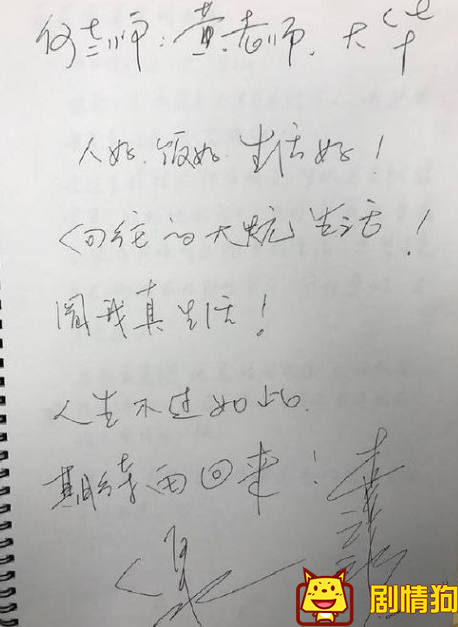 何老师、黄老师、大华
人好、饭好、生活好！
向往的大炕生活！
我真生活！
人生不过如此.
期待再回来！
剧情狗